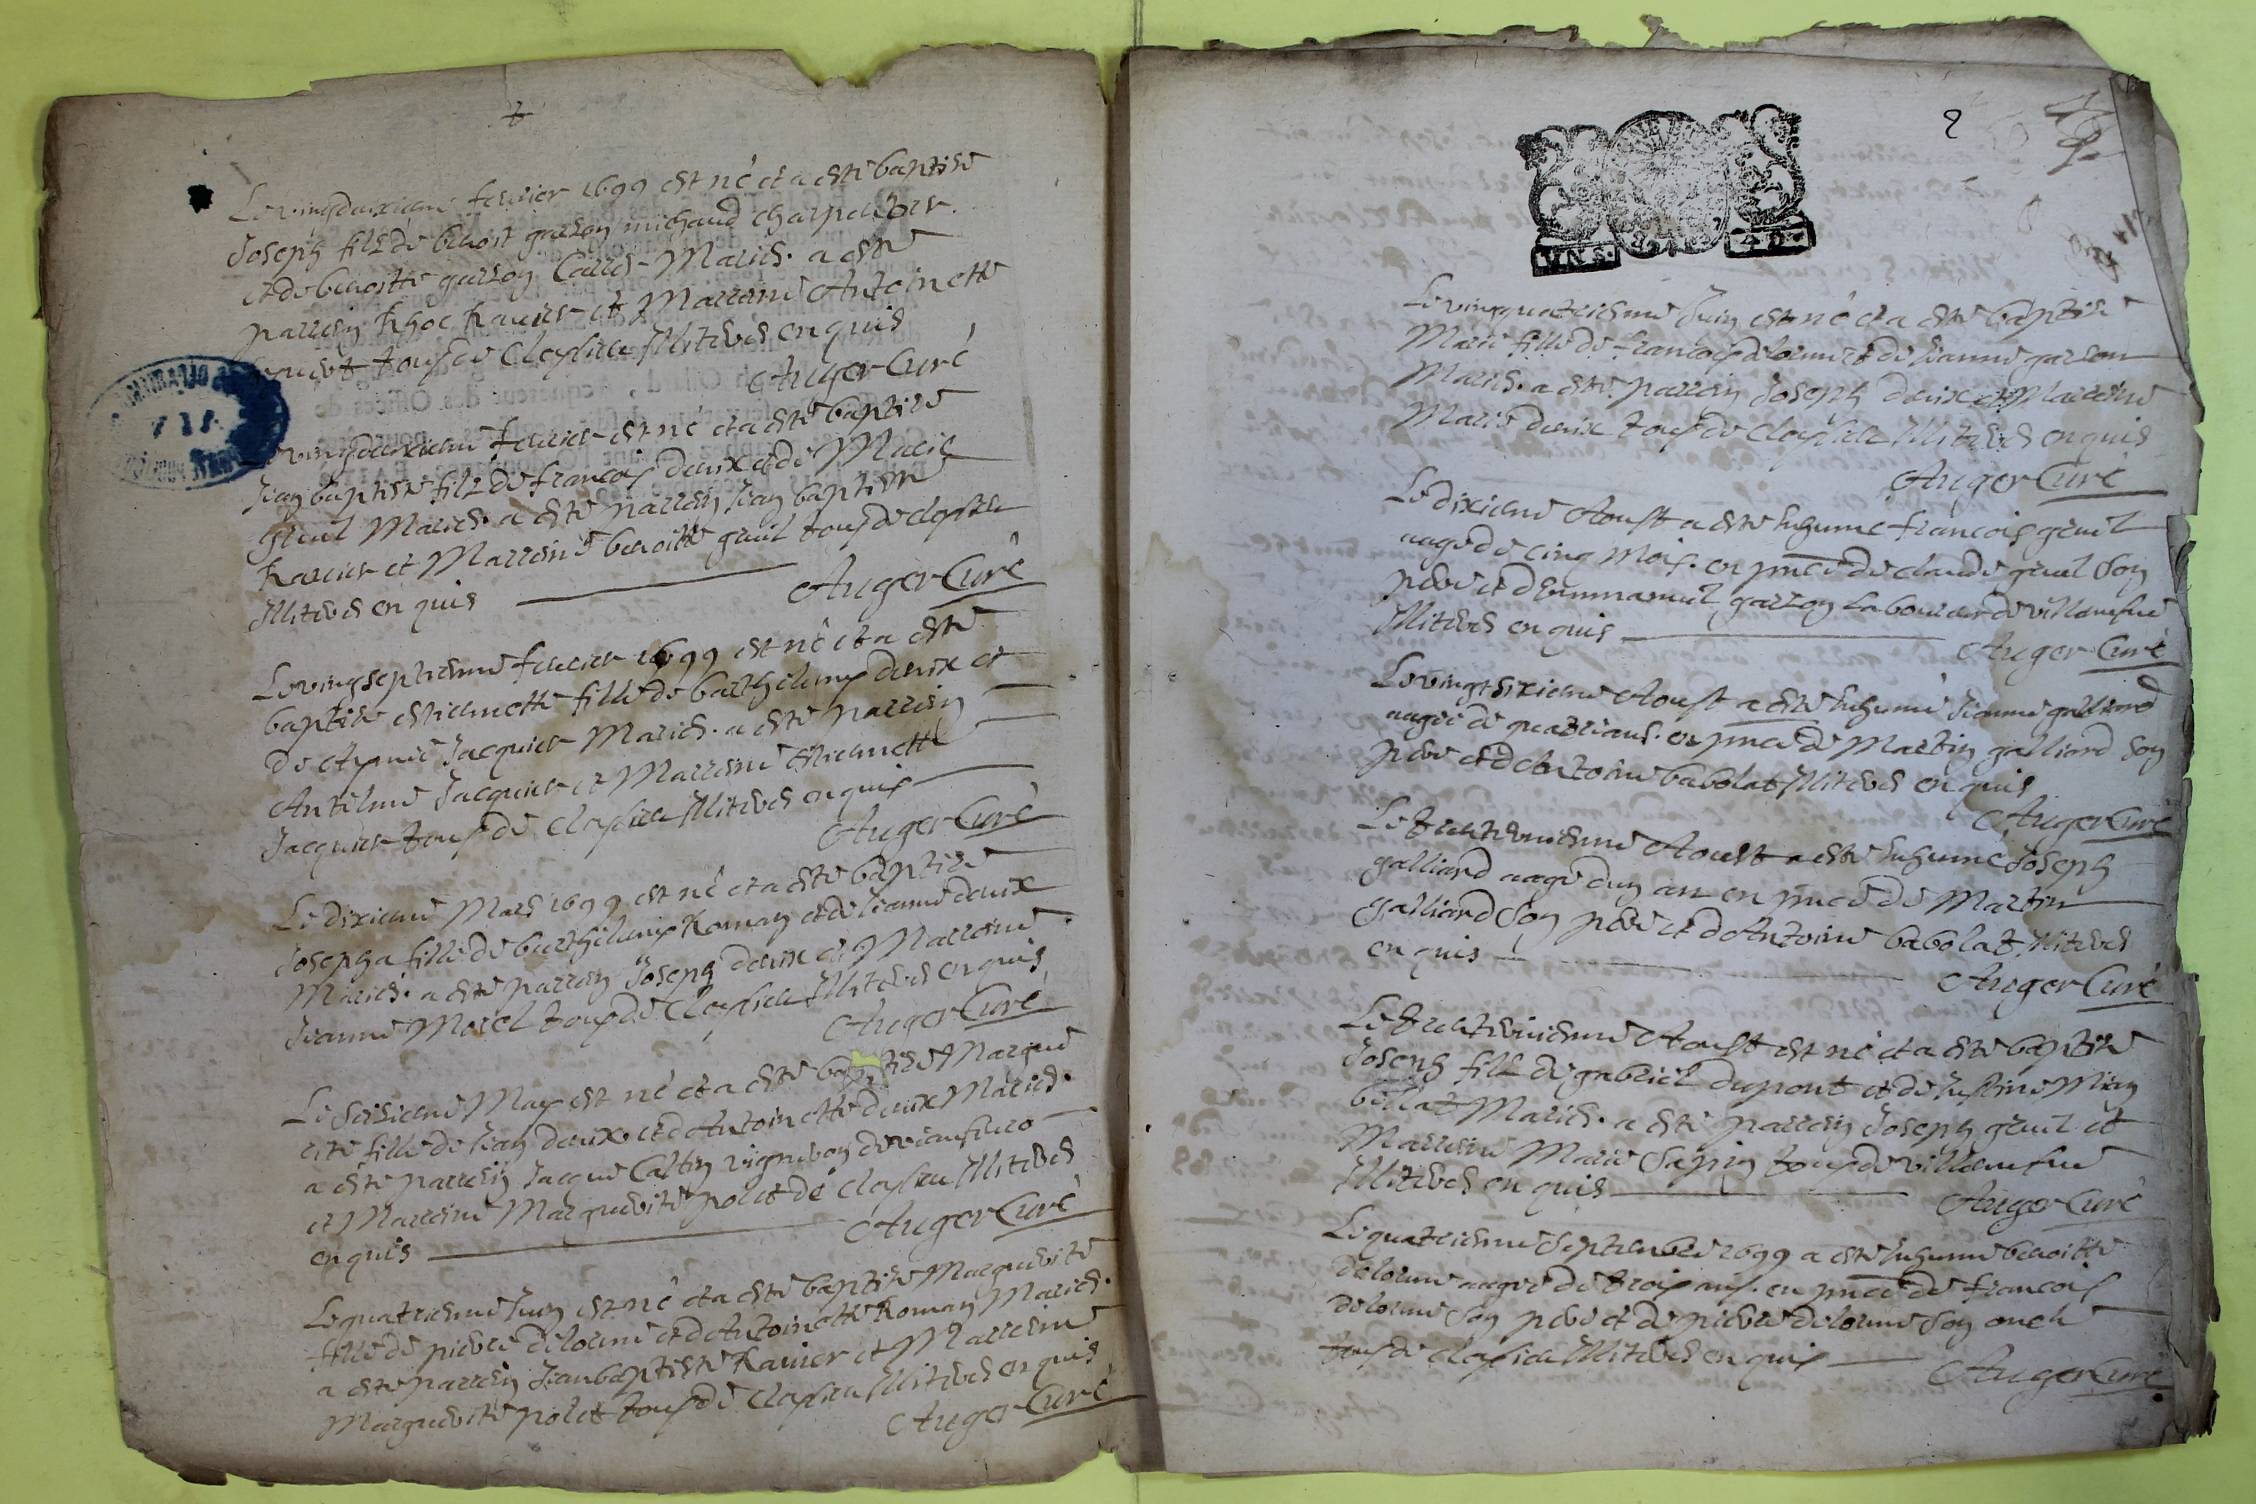 Le vingdeuxieme feuvier 1699 est né et a esté baptisé
Joseph filz de benoit garson michaud charpentier
et de benoitte garson Carrel Mariés. a esté
parrein Rhoc Ravier et Marreine Antoinette
tous de Cleysieu Illiterés enquis
Auger Curé
Le vingdeuxieme feuvier est né et a esté baptisé
Jean baptiste filz de francois deux et de Marie
gruel Mariés. a esté parrein Jean baptiste
Ravier et Marreine benoitte gruil tous de cleysieu
Illiterés enquis
Auger Curé
Le vingseptieme feuvier 1699 est né et a esté
baptisé estiennette fille de barthelemy deux et
de Aymé Jacquier Mariés. a esté parrein
Antelme Jacquier et Marreine estiennette
Jacquier tous de Cleysieu Illiterés enquis
Auger Curé
Le dixieme Mars 1699 est né et a esté baptisé
Josepha fille de barthelemy Roman et de Jeanne deux
Mariés. a esté parrein Joseph deux et Marreine
Jeanne Morel tous de Cleysieu Illiterés enquis
Auger Curé
Le seisieme May est né et a esté baptisé Margue
rite fille de Jean deux et d'Antoinette deux Mariés.
a esté parrein Jacque Caltin vigneron de
et Marreine Marguerite polet de Cleysieu Illiterés
enquis
Auger Curé
Le quatrieme Juin est né et a esté baptisé Marguerite
fille de pierre delorme et d'Antoinette Roman Mariés.
a esté parrein Jeanbaptiste Ravier et Marreine
Marguerite polet tous de Cleysieu Illiterés enquis
Auger Curé
2
Le vingquatrieme Juin est né et a esté baptisé
Marie fille de francois delorme et de Jeanne garson
Mariés. a esté parrein Joseph deux et Marreine
Marie deux tous de Cleysieu Illiterés enquis
Auger Curé
Le dixieme Aoust a esté Inhumé francois gruil
aagé de cinq Mois. en pnce de claude gruel son
pere et d'Emmanuel garson laboureur de villeneufve
Illiterés enquis
Auger Curé
Le vingtsixieme Aoust a esté Inhumé Jeanne galliard
aagée de quatre ans. en pnce de Martin galliard son
pere et d'Antoine babolat Illiterés enquis
Auger Curé
Le trentunieme Aoust a esté Inhumé Joseph
galliard aagé d'un an en pnce de Martin
galliard son pere et d'Antoine babolat Illiterés
enquis
Auger Curé
Le trentunieme Aoust est né et a esté baptisé
Joseph filz de gabriel dupont et de Justine Min
Mariés. a esté parrein Joseph gruil et
Marreine Marie Sapin tous de villeneufve
Illiterés enquis
Auger Curé
Le quatrieme Septembre 1699 a esté Inhumé benoitte
delorme aagée de trois ans. en pnce de francois
delorme son pere et de pierre delorme son oncle
tous de Cleysieu Illiterés enquis
Auger Curé